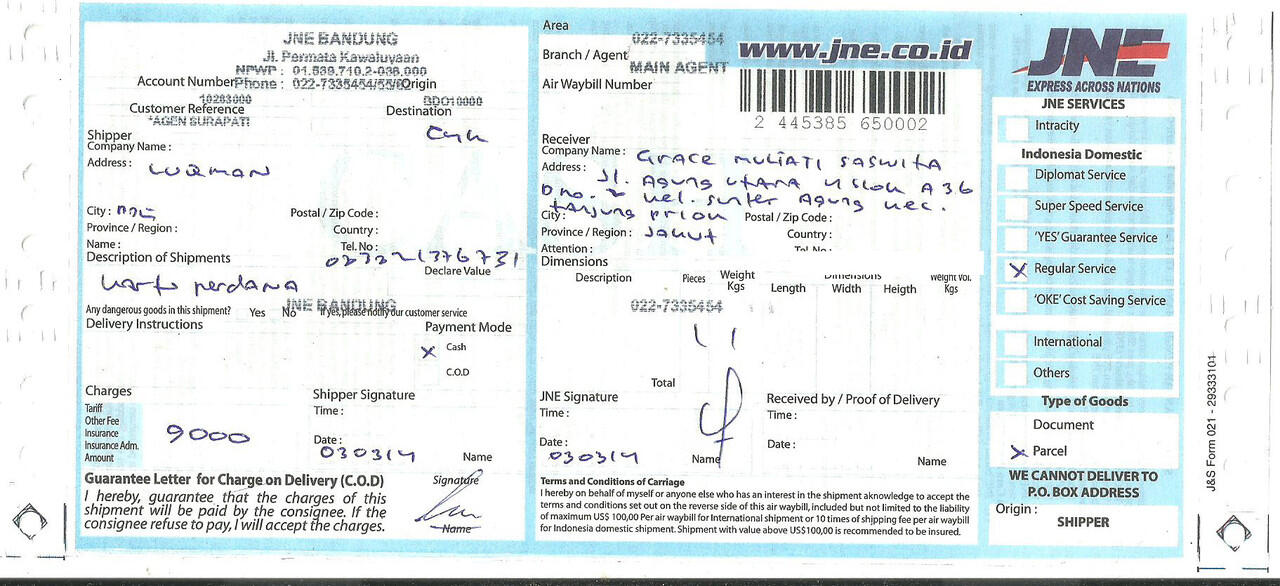 JNE BANDUNG
Jl. Permata Kawaluyaan
NPWP : 01.539.710.2-038.000
Account Number Phone : 022-7335454/55/60 Origin
10263000
BDO10000
Customer Reference
Destination
*AGEN SURAPATI
Cgk
Shipper
Company Name :
Address : LUQMAN
City : BDG
Postal / Zip Code :
Province / Region :
Country :
Name :
Tel. No :
Description of Shipments
Declare Value
kartu perdana
JNE BANDUNG
Any dangerous goods in this shipment? Yes No If yes, please notify our customer service
Delivery Instructions
Payment Mode
x Cash
C.O.D
Charges
Shipper Signature
Tariff
Other Fee
Insurance
Insurance Adm.
Amount
9000
Time :
Date : 030314
Name
Guarantee Letter for Charge on Delivery (C.O.D)
I hereby, guarantee that the charges of this
shipment will be paid by the consignee. If the
consignee refuse to pay, I will accept the charges.
Signature
Name
Area
022-7335454
Branch / Agent
MAIN AGENT
www.jne.co.id
Air Waybill Number
2 445385 650002
Receiver
Company Name : GRACE MULIATI SASWITA
Address : Jl. Agung Utara
A 36
D no. 2 kel. sunter Agung kec.
City : tanjung priok
Postal / Zip Code :
Province / Region : Jakut
Country :
Attention :
Tel. No :
Dimensions
Description Pieces Weight Kgs Length Dimensions Width Heigth Weight Vol. Kgs
022-7335454
1 1
Total
JNE Signature
Received by / Proof of Delivery
Time :
Time :
Date : 030314
Name
Date :
Name
Terms and Conditions of Carriage
I hereby on behalf of myself or anyone else who has an interest in the shipment aknowledge to accept the
terms and conditions set out on the reverse side of this air waybill, included but not limited to the liability
of maximum US$ 100,00 Per air waybill for International shipment or 10 times of shipping fee per air waybill
for Indonesia domestic shipment. Shipment with value above US$100,00 is recommended to be insured.
JNE
EXPRESS ACROSS NATIONS
JNE SERVICES
Intracity
Indonesia Domestic
Diplomat Service
Super Speed Service
'YES' Guarantee Service
x Regular Service
'OKE' Cost Saving Service
International
Others
Type of Goods
Document
x Parcel
WE CANNOT DELIVER TO
P.O. BOX ADDRESS
Origin :
SHIPPER
J&S Form 021 - 29333101